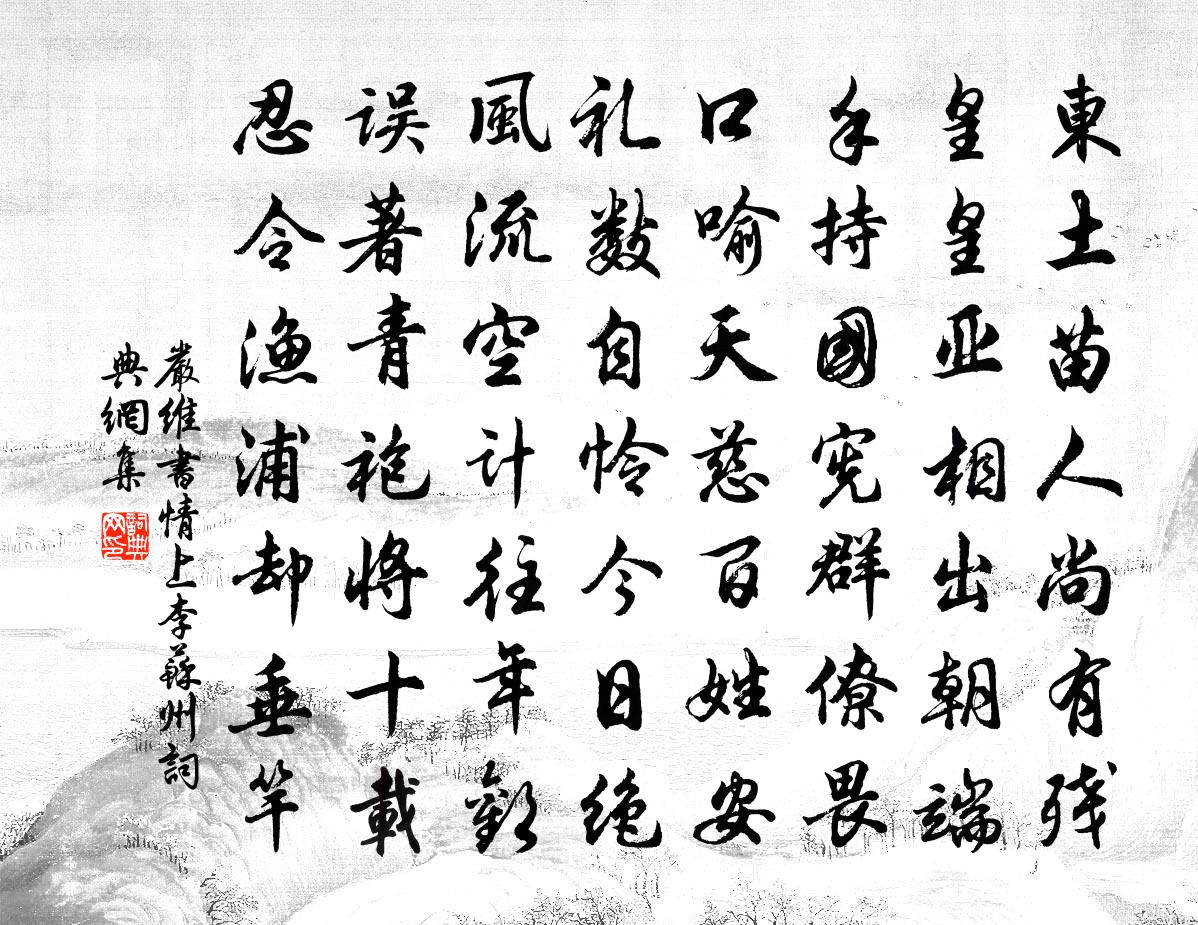 東土苗人尚有残
皇皇亚相出朝端
手持國憲群僚畏
口喻天慈百姓安
礼數自怜今日絕
風流空計往年歡
誤著青袍將十載
忍令漁浦却垂竿
嚴維書情上李蘇州詞
典網集
詞典
网印